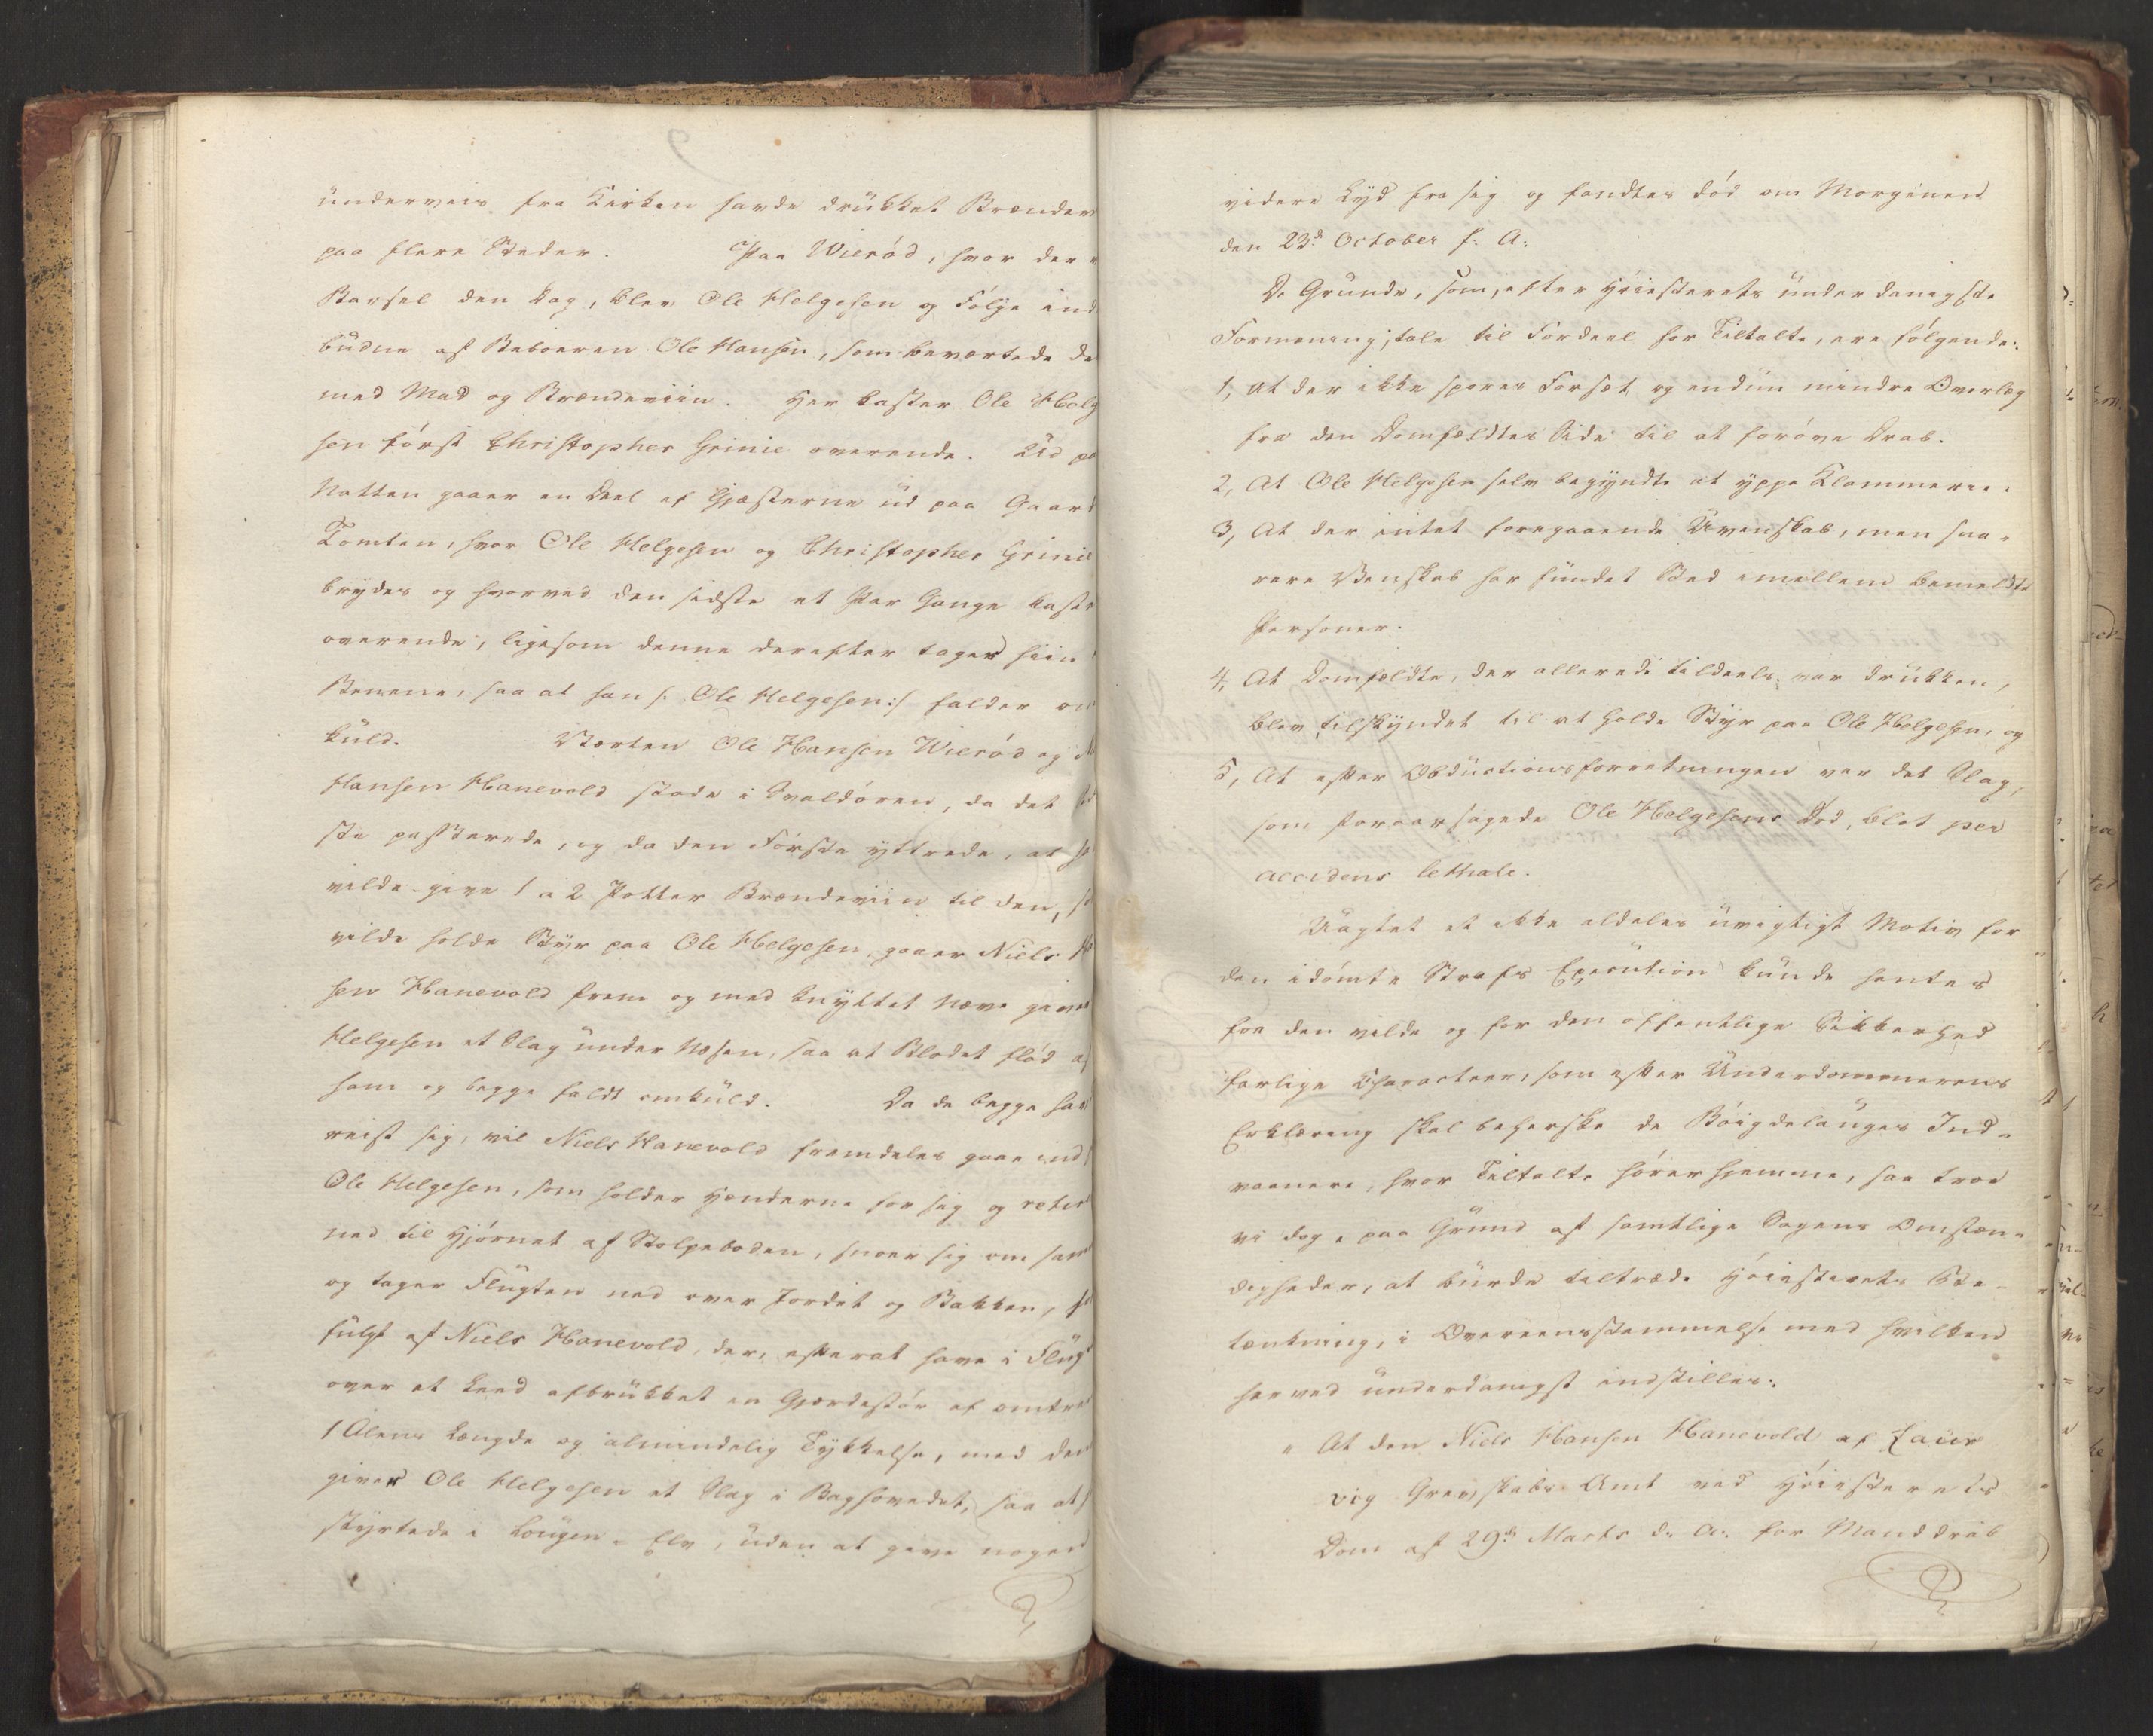 underveis fra Kirken havde drukket Brændev
paa flere Steder. Paa Wieröd, hvor der
Barsel den Dag, blev Ole Helgesen og Følge ind
budne af Beboeren Ole Hansen, som bevertede de
med Mad og Brændeviin. Her kaster Ole Helg
sen først Christopher Grinie overende. Ud pa
Natten gaaer en Deel af Gjæsterne ud paa Gaard
Tomten, hvor Ole Helgesen og Christopher Grinie
brydes og hvorved den sidste et Par Gange kast
overende, ligesom denne derefter tager hiin
Benene, saa at han /: Ole Helgesen :/ falder om
kuld. Værten Ole Hansen Wieröd og
Hansen Hanevold stode i Svaldøren, da det sid
ste passerede, og da den Første yttrede, at h
vilde give 1 a 2 Potter Brændeviin til den, s
vilde holde Styr paa Ole Helgesen, gaaer Niels H
sen Hanevold frem og med knyttet Næve giver
Helgesen et Slag under Næsen, saa at Blodet flød a
ham og begge faldt omkuld. Da de begge hav
reist sig, vil Niels Hanevold fremdeles gaae ind
Ole Helgesen, som holder Hænderne for sig og reti
ned til Hjørnet af Stolpeboden, snoer sig om sam
og tager Flugten ned over Jordet og Bakken, f
fulgt af Niels Hanevold, der, efterat have i Flug
over et Leed afbrukket en Gjærdestør af omtre
1 Alens Længde og almindelig Tykkelse, med den
giver Ole Helgesen et Slag i Baghovedet, saa at
styrtede i Lougen-Elv, uden at give nogen
videre Lyd fra sig og fandtes død om Morgenen
den 23de October f: A:
De Grunde, som, efter Høiesterets underdanigste
Formening, tale til Fordeel for Tiltalte, ere følgende:
1, at der ikke spores Forsæt og endnu mindre Overlæg
fra den Domfældtes Side til at forøve Drab.
2, At Ole Helgesen selv begyndte at yppe Klammerie.
3, At der intet foregaaende Uvenskab, men sna-
rere Venskab har fundet Sted imellem bemeldte
Personer.
4, At Domfældte, der allerede tildeels var drukken,
blev tilskyndet til at holde Styr paa Ole Helgesen, og
5, At efter Obductionsforretningen var det Slag,
som foraarsagede Ole Helgesens Død, blot per
accidens lethale.
Uagtet et ikke aldeles uvigtigt Motiv for
den idømte Strafs Execution kunde hentes
fra den vilde og for den offentlige Sikkerhed
farlige Characteer, som efter Underdommerens
Erklæring skal beherske de Bøigdelauges Ind-
vaanere, hvor Tiltalte hører hjemme, saa troe
vi dog, paa Grund af samtlige Sagens Omstæn-
digheder, at burde tiltræde Høiesterets Be-
tænkning, i Overeensstemmelse med hvilken
herved underdanigst indstilles:
" At den Niels Hansen Hanevold af Laur
vig Grevskabs Amt ved Høiesterets
Dom af 29de Marts d: A: for Manddrab